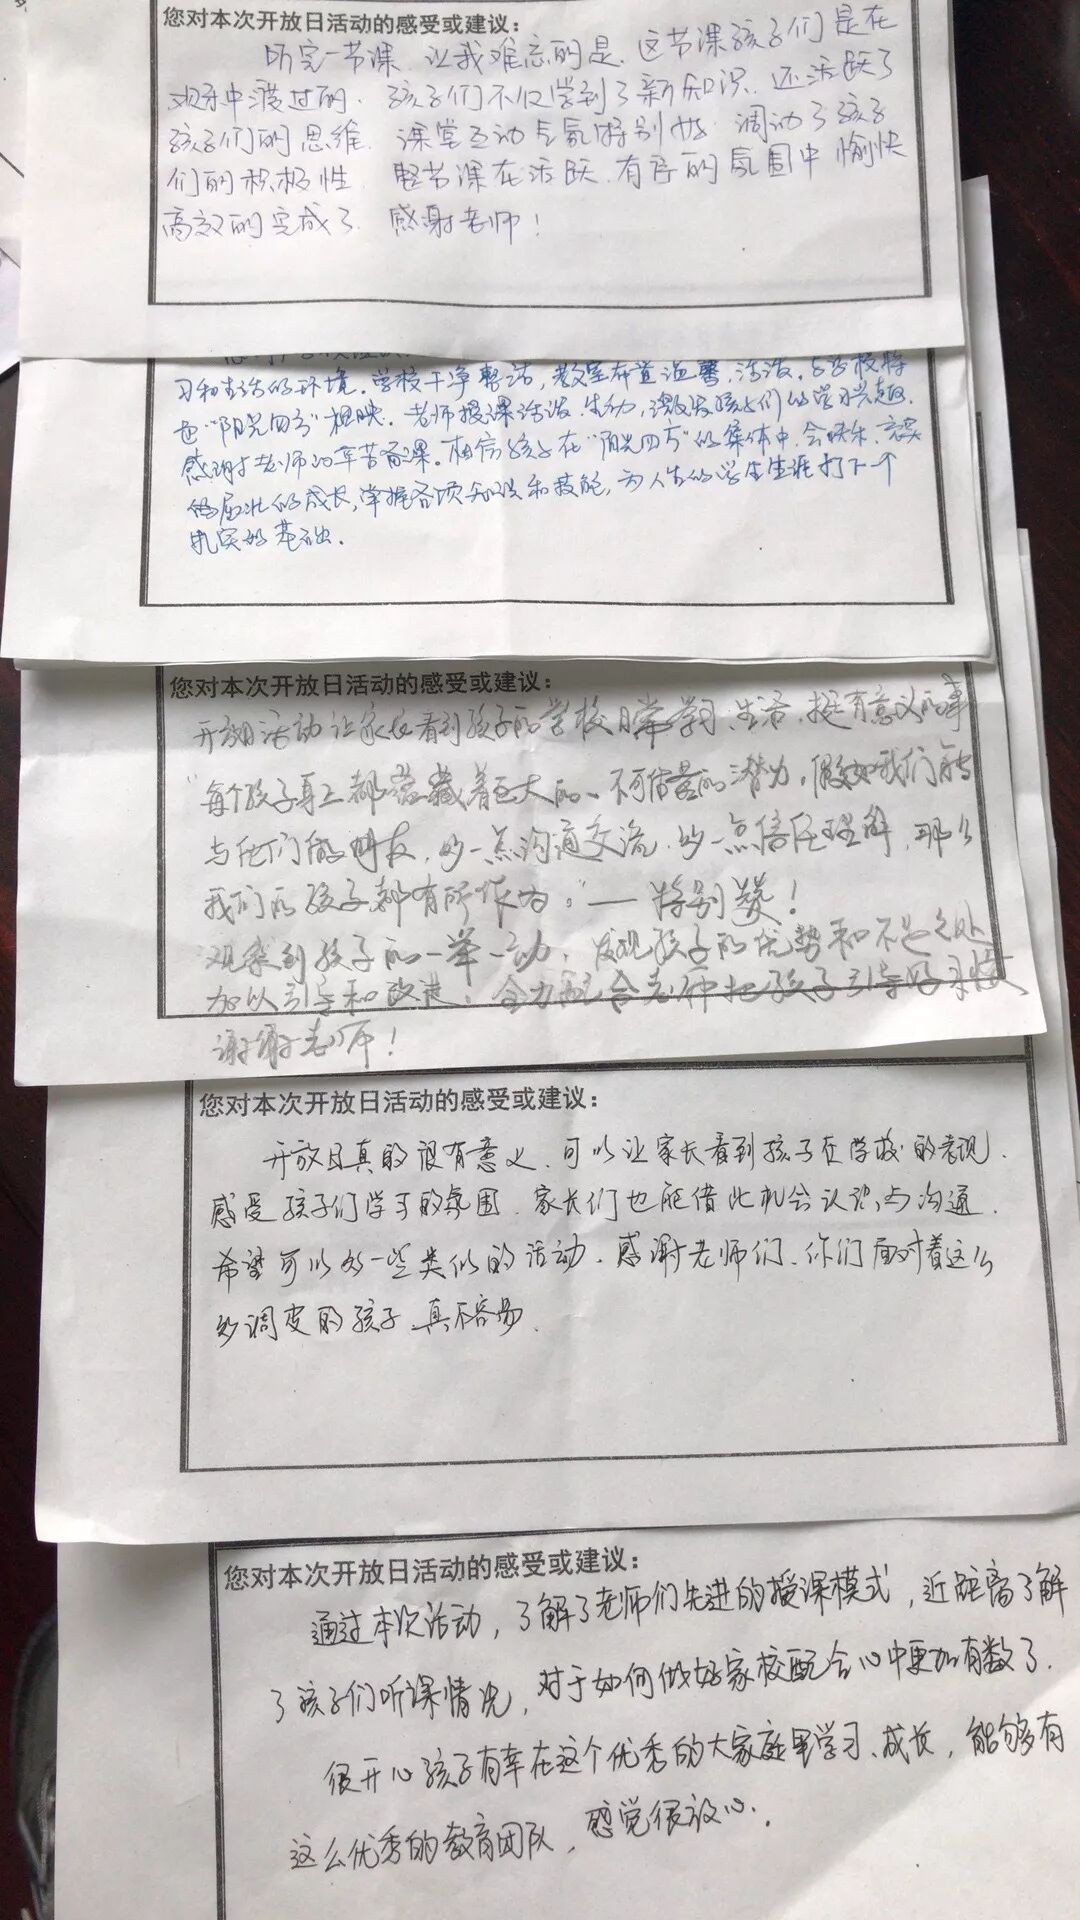 您对本次开放日活动的感受或建议：
听完一节课，让我难忘的是，这节课孩子们是在
欢乐中渡过的，孩子们不仅学到了新知识，还活跃了
孩子们的思维，课堂互动气氛特别好，调动了孩子
们的积极性，整节课在活跃、有序的氛围中愉快
高效的完成了，感谢老师！
习和生活的环境。学校干净整洁，教室布置温馨、活泼，与学校
也"阳光四方"相映。老师授课活泼、生动，激发孩子们的学习兴趣，
感谢老师的辛苦备课。相信孩子在"阳光四方"的集体中，会快乐、充实
的茁壮的成长，掌握各项知识和技能，为人生的学生生涯打下一个
扎实的基础。
您对本次开放日活动的感受或建议：
开放日活动让家长看到孩子的学校日常学习、生活，挺有意义的事
"每个孩子身上都蕴藏着巨大的、不可估量的潜力，假如我们能
与他们做朋友，多一点沟通交流，多一点信任理解，那么
我们的孩子都有所作为。"——特别赞！
观察到孩子的一举一动，发现孩子的优势和不足之处
加以引导和改进，全力配合老师把孩子引导好习惯
谢谢老师！
您对本次开放日活动的感受或建议：
开放日真的很有意义，可以让家长看到孩子在学校的表现，
感受孩子们学习的氛围，家长们也能借此机会认识与沟通，
希望可以多一些类似的活动，感谢老师们，你们面对着这么
多调皮的孩子，真不容易，
您对本次开放日活动的感受或建议：
通过本次活动，了解了老师们先进的授课模式，近距离了解
了孩子们听课情况，对于如何做好家校配合心中更加有数了．
很开心孩子有幸在这个优秀的大家庭里学习、成长，能够有
这么优秀的教育团队，感觉很放心．